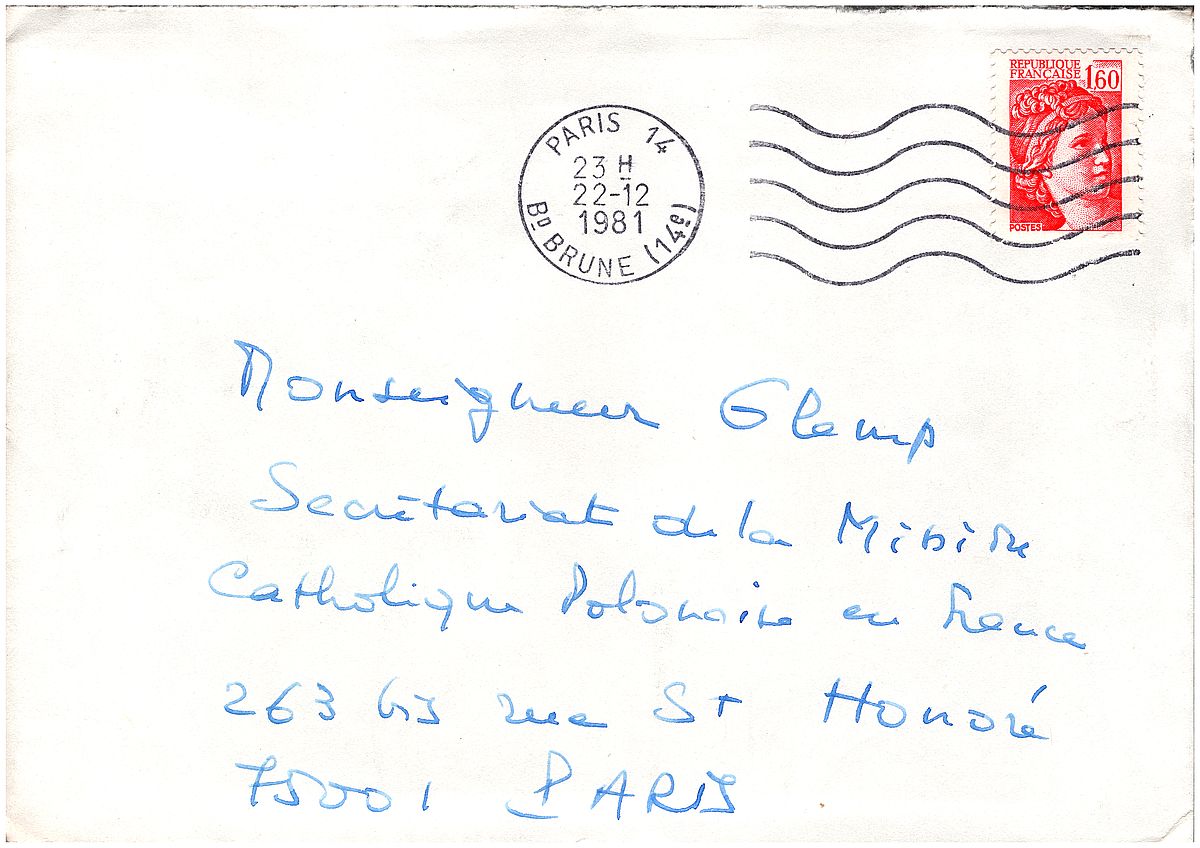 REPUBLIQUE
FRANÇAISE 1,60
POSTES
PARIS 14
23 H
22-12
1981
BD BRUNE (14e)
Monseigneur Glemp
Secrétariat de la Mission
Catholique Polonaise en France
263 bis rue St Honoré
75001 PARIS